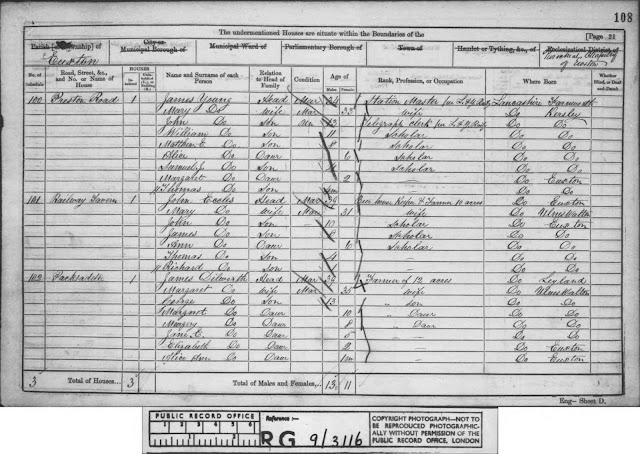 108
The undermentioned Houses are situate within the Boundaries of the [Page 21
Parish [or Township] of Euxton
City or Municipal Borough of
Municipal Ward of
Parliamentary Borough of
Town of
Hamlet or Tything, &c., of
Ecclesiastical District of
No. of Schedule
Road, Street, &c., and No. or Name of House
HOUSES
Name and Surname of each Person
Relation to Head of Family
Condition
Age of
Males
Females
Rank, Profession, or Occupation
Where Born
Whether Blind, or Deaf-and-Dumb
100 Preston Road 1 James Young Head Mar Station Master for L & Y Rail Lancashire Farnworth
Mary Do Wife Mar 33 Wife Do Kersley
John Do Son Un 12 Telegraph Clerk for L & Y Rail Do Do
William Do Son 11 Scholar Do Do
Matthew Do Son 8 Scholar Do Do
Alice Do Daur 6 Scholar Do Do
Samuel Do Son 4 Scholar Do Do
Margaret Do Daur 2 — Do Euxton
Thomas Do Son — Do Do
101 Railway Tavern 1 John Eccles Head Mar 39 Beer house Keeper & Farmer 10 acres Do Euxton
Mary Do Wife Mar 31 Wife Do Ulnes Walton
John Do Son 10 Scholar Do Euxton
James Do Son 8 Scholar Do Do
Ann Do Daur 6 Scholar Do Do
Thomas Do Son 4 — Do Do
Richard Do Son — Do Do
102 Packsaddle 1 James Dilworth Head Mar 39 Farmer of 12 acres Do Leyland
Margaret Do Wife Mar 35 Wife Do Ulnes Walton
George Do Son 13 " Son Do Do
Margaret Do Daur 10 " Daur Do Do
Do Daur 8 " Daur Do Do
Do Daur 5 — Do Do
Elizabeth Do Daur 2 — Do Euxton
Alice Ann Do Daur 1m — Do Euxton
3 Total of Houses... 3 Total of Males and Females... 13 11
Eng—Sheet D.
PUBLIC RECORD OFFICE
1 2 3 4 5 6
Reference :-
RG 9/3116
COPYRIGHT PHOTOGRAPH—NOT TO
BE REPRODUCED PHOTOGRAPHIC-
ALLY WITHOUT PERMISSION OF THE
PUBLIC RECORD OFFICE, LONDON